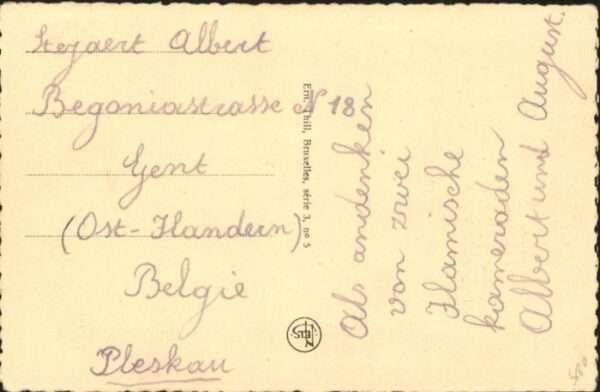 Steyaert Albert
Begoniastrasse N 18
Gent
(Ost-Flandern)
Belgie
Pleskau
Ern. Thill, Bruxelles, série 3, no 5
NELS
Als andenken
von zwei
Flamische
kameraden
Albert und August.